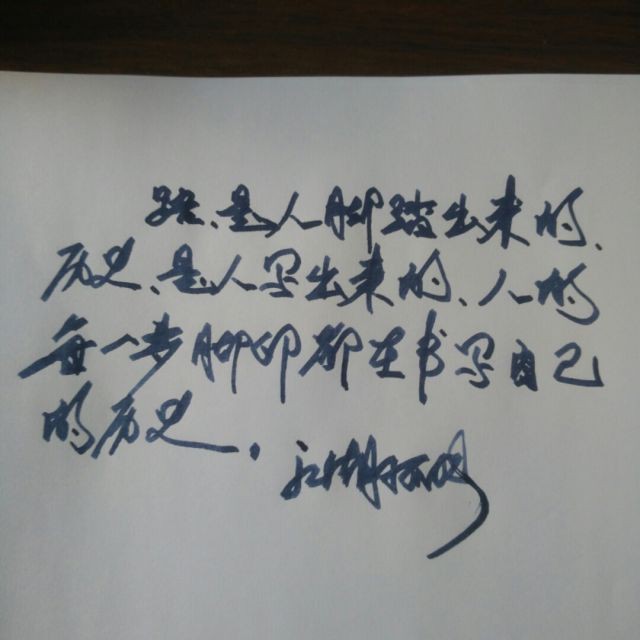 路、是人脚踏出来的、
历史、是人写出来的、人的
每一步脚印都在书写自己
的历史.